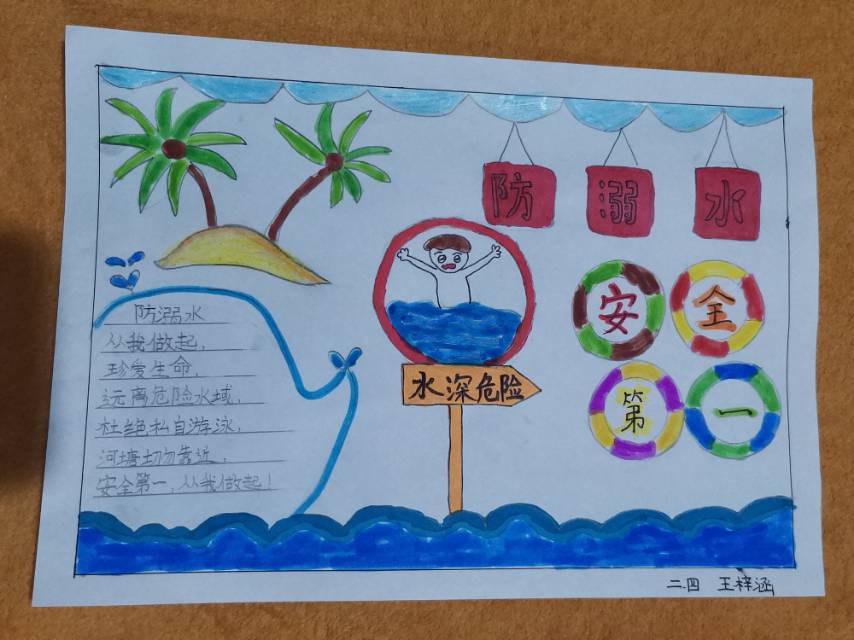 防溺水
安全
第一
水深危险
防溺水
从我做起，
珍爱生命，
远离危险水域，
杜绝私自游泳，
河塘切勿靠近，
安全第一，从我做起！
二.四 王梓涵